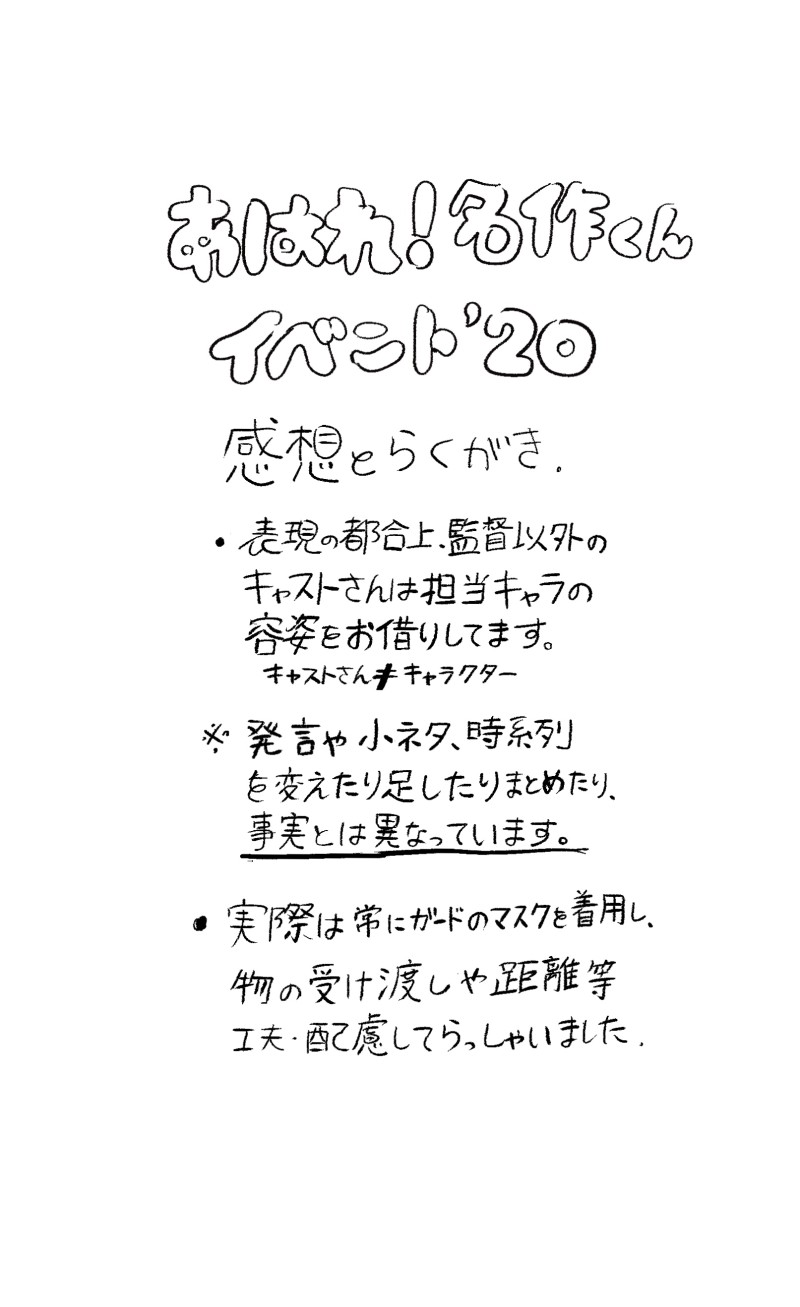 あはれ!名作くん
イベント'20
感想とらくがき.
・表現の都合上、監督以外の
キャストさんは担当キャラの
容姿をお借りしてます。
キャストさん≠キャラクター
※発言や小ネタ、時系列
を変えたり足したりまとめたり、
事実とは異なっています。
・実際は常にガードのマスクを着用し、
物の受け渡しや距離等
工夫・配慮してらっしゃいました.